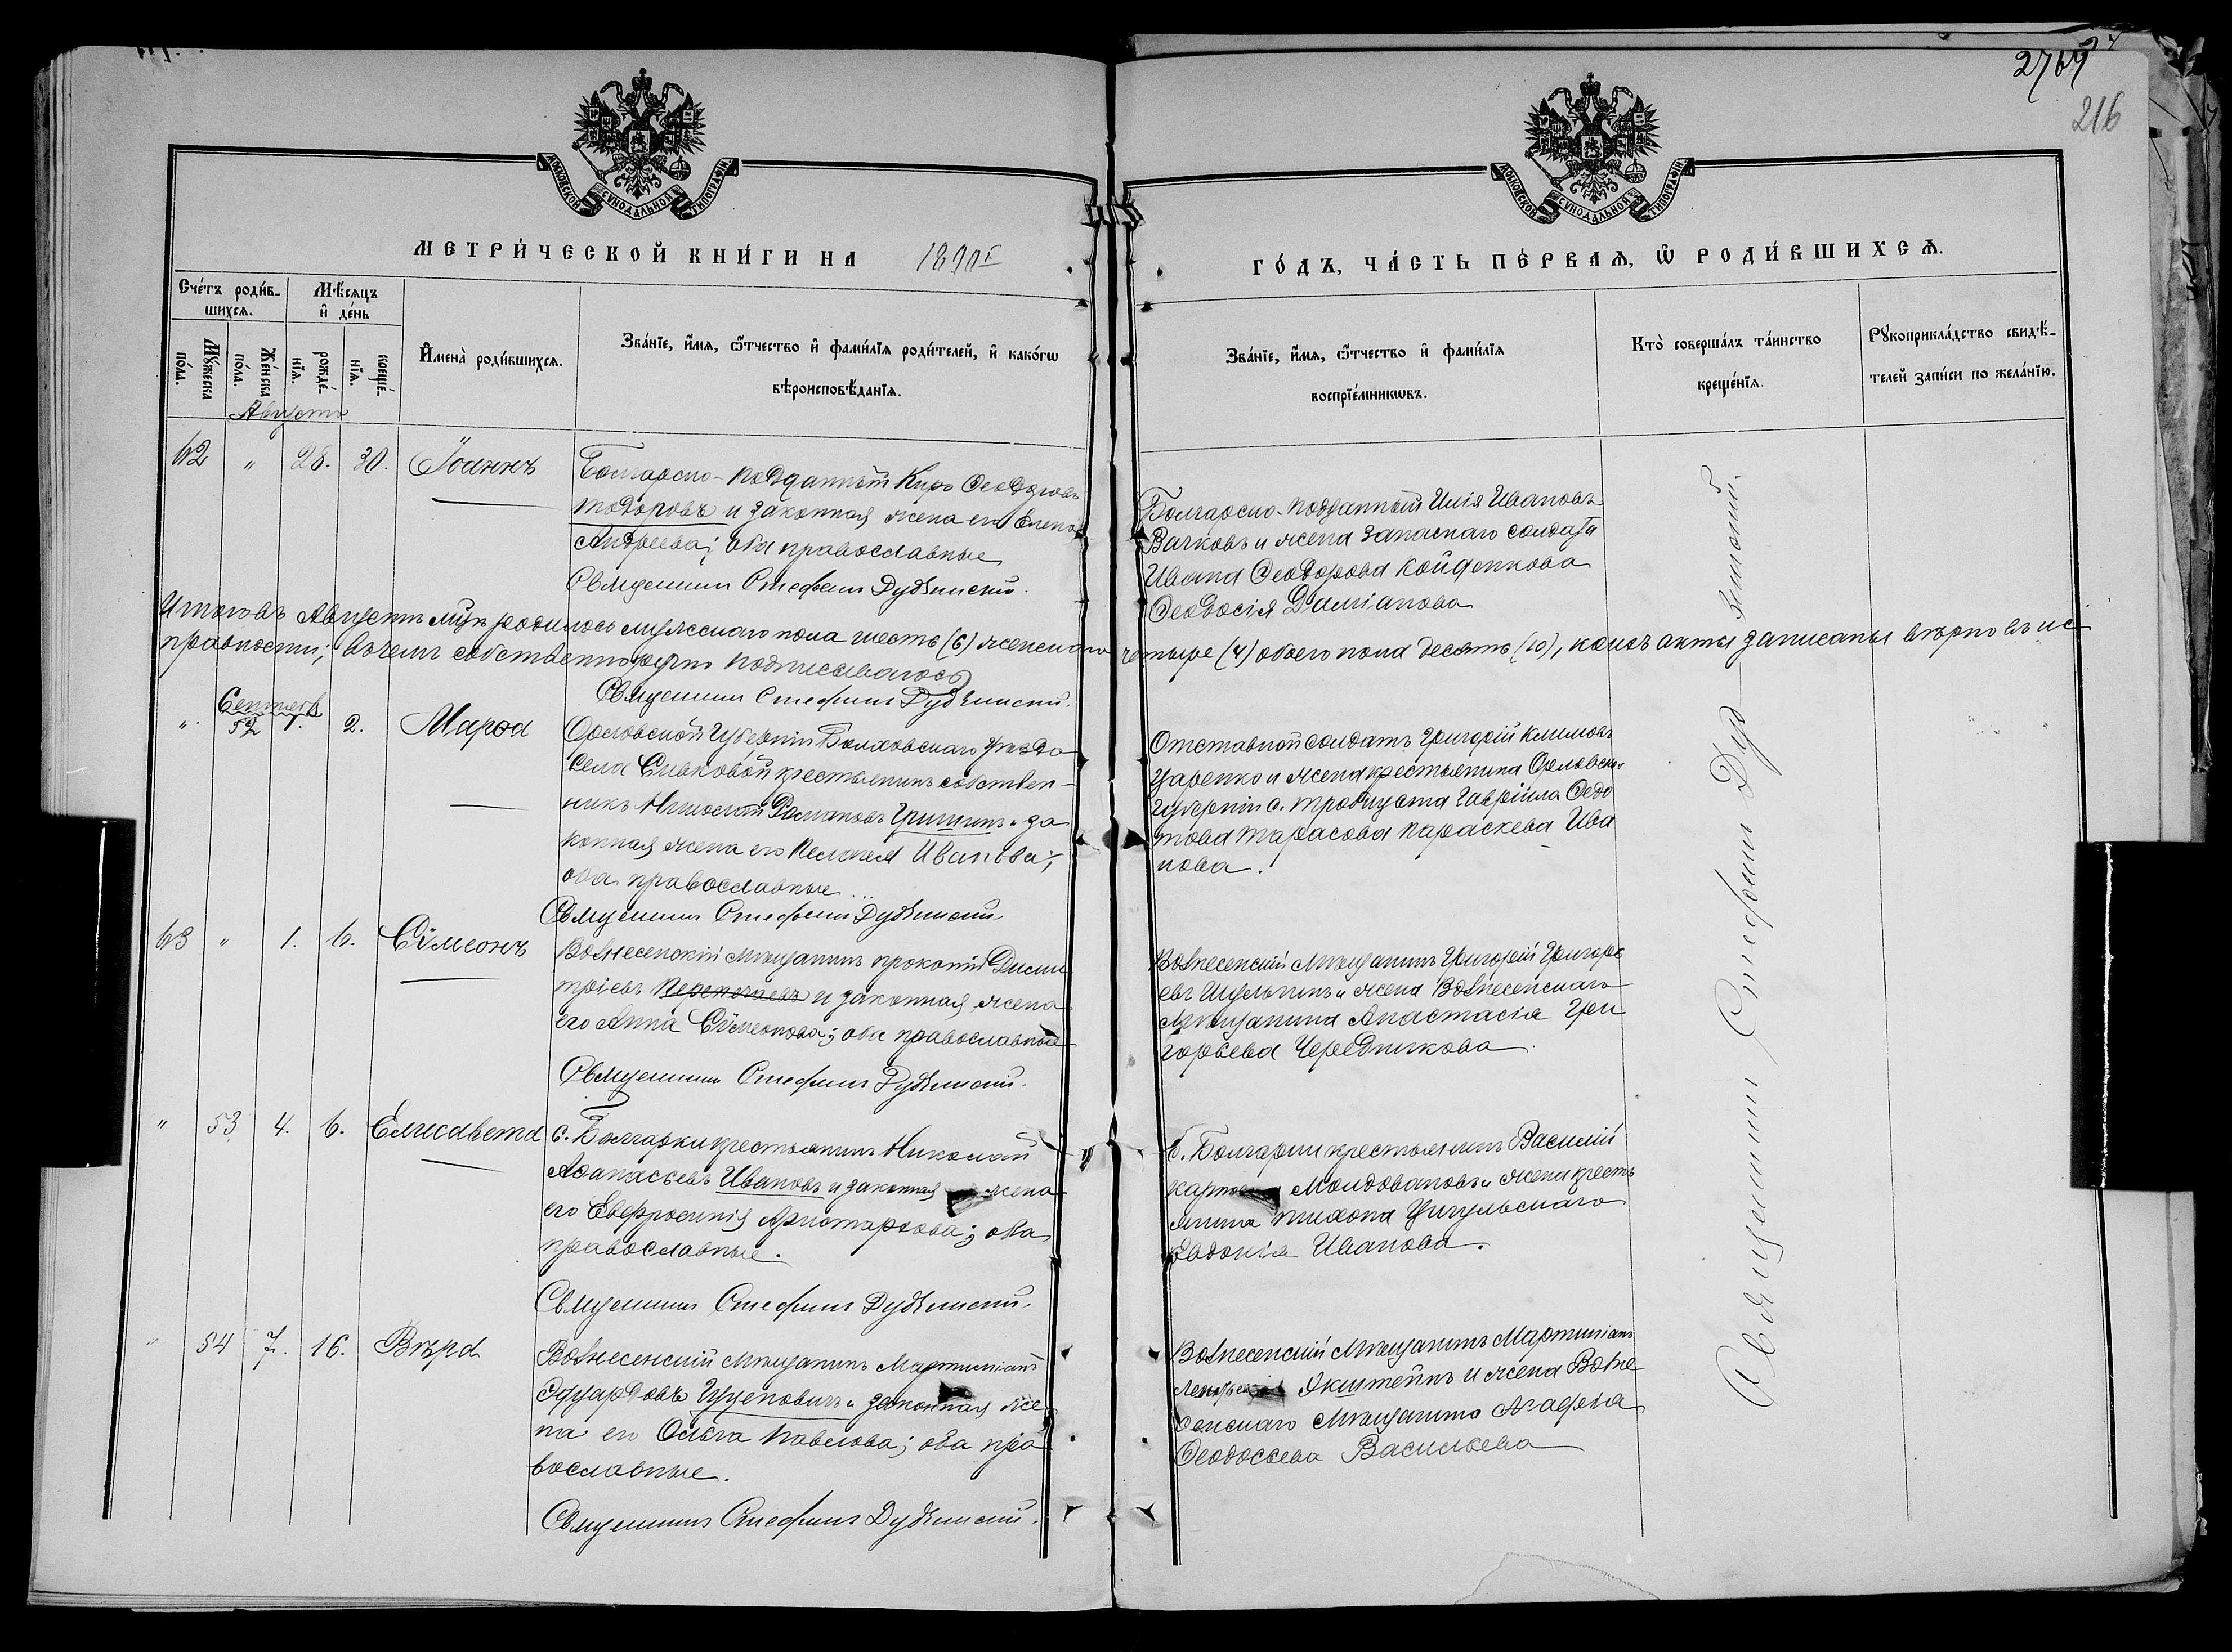 276
216
МОСКОВСКОЙ СѴНОДАЛЬНОЙ ТИПОГРАФІИ
МОСКОВСКОЙ СѴНОДАЛЬНОЙ ТИПОГРАФІИ
МЕТРИ́ЧЕСКОЙ КНИ́ГИ НА 1890 Г
ГО́ДЪ, ЧА́СТЬ ПЕ́РВАѦ, Ѡ҆ РОДИ́ВШИХСѦ.
Сче́тъ роди́в-
шихсѧ.
Мꙋ́жеска
по́ла.
Же́нска
по́ла.
Мѣ́сѧцъ
и҆ де́нь
рожде́-
нїѧ.
креще́-
нїѧ.
И҆мена̀ роди́вшихсѧ.
Зва́нїе, и҆́мѧ, ѻ҆́тчество и҆ фами́лїѧ роди́телей, и҆ како́гѡ
вѣроисповѣ́данїѧ.
Зва́нїе, и҆́мѧ, ѻ҆́тчество и҆ фами́лїѧ
воспрїе́мникѡвъ.
Кто̀ соверша́лъ та́инство
креще́нїѧ.
Рꙋкоприкла́дство свидѣ́-
телей за́писи по жела́нїю.
Августъ
62 " 28. 30. Іоаннъ
Болгарско-подданный Киро Ѳеодоровъ
Тодоровъ и законная жена его Елена
Андреева; оба православные
Священникъ Стефанъ
Болгарско-подданный Илія Ивановъ
Вачковъ и жена запаснаго солдата
Ивана Ѳеодорова
Ѳеодосія Даміанова
Итого въ Августѣ м-цѣ родилось мужескаго пола шесть (6) женскаго четыре (4) обоего пола десять (10), каковъ акты записаны вѣрно въ ис
правности; въ чемъ собственноручно подписываюсь
Священникъ Стефанъ
Сентябрь
" 52 1. 2. Марѳа
Орловской губерніи Болховскаго уѣзда
села Сивковой крестьянинъ собствен-
никъ Николай Романовъ Гришинъ и за
конная жена его Пелагея Иванова;
оба православные
Священникъ Стефанъ
Отставной солдатъ Григорій Климовъ
Царенко и жена крестьянина Орловской
губерніи с. Гавріила Ѳедо
това Тарасова Параскева Ива
нова.
63 " 1. 6. Сѵмеонъ
Вознесенскій мѣщанинъ Прокопій Дими
тріевъ и законная жена
его Анна Сѵмеонова; оба православные
Священникъ Стефанъ
Вознесенскій мѣщанинъ Григорій Григорь
евъ Шульгинъ и жена Вознесенскаго
мѣщанина Анастасія Гри
горьева Чередникова
" 53 4. 6. Елисавета
с. Болгарки крестьянинъ Николай
Аѳанасьевъ Ивановъ и законная жена
его Евфросинія Аристархова; оба
православные.
Священникъ Стефанъ
с. Болгарки крестьянинъ Василій
Молдовановъ и жена кресть
янина Тихона Цигульскаго
Евдокія Иванова.
" 54 7. 16. Вѣра
Вознесенскій мѣщанинъ Мартиніанъ
Эдуардовъ Цуцеповичъ и законная же
на его Ольга Павлова; оба пра
вославные.
Священникъ Стефанъ
Вознесенскій мѣщанинъ Мартиніанъ
Якштейнъ и жена Возне
сенскаго мѣщанина Агафія
Ѳеодосьева Васильева
Священникъ Стефанъ